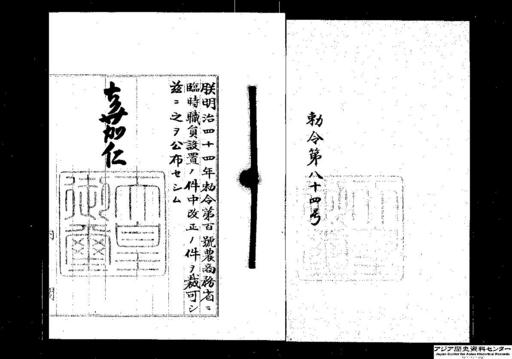 勅令第八十四号
朕明治四十四年勅令第百號農商務省ニ
臨時職員設置ノ件中改正ノ件ヲ裁可シ
茲ニ之ヲ公布セシム
嘉仁
天皇
御璽
内閣
アジア歴史資料センター
Japan Center for Asian Historical Records